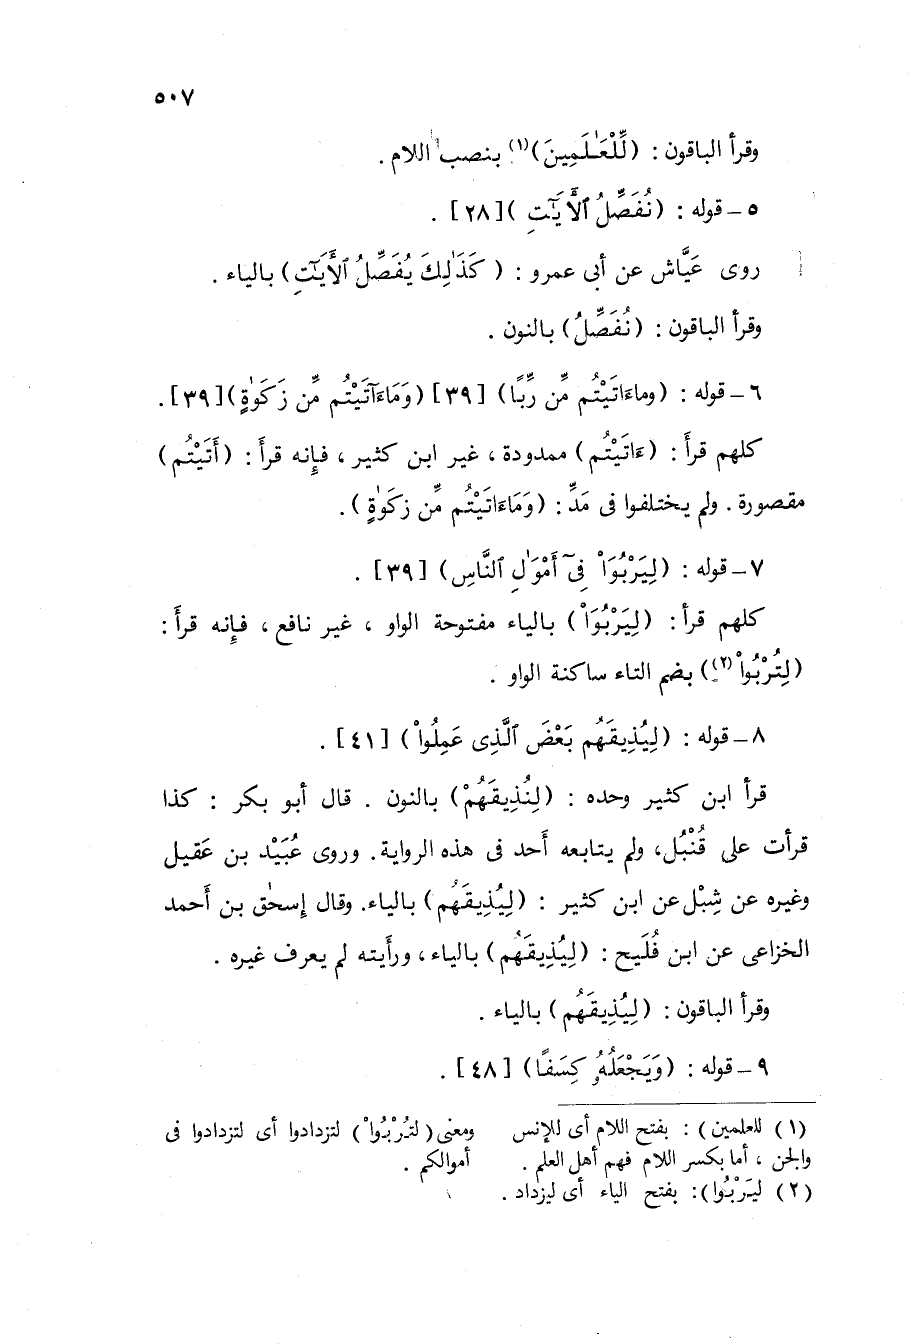 ٥٠٧
وقرأ الباقون : (لِّلْعَـٰلَمِينَ)(١) بنصب اللام .
٥ ــ قوله : (نُفَصِّلُ ٱلْأَيَـٰتِ )[٢٨] .
روى عَيَّاش عن أبى عمرو : ( كَذَٰلِكَ يُفَصِّلُ ٱلْأَيَـٰتِ) بالياء .
وقرأ الباقون : (نُفَصِّلُ) بالنون .
٦ ــ قوله : (وماءَاتَيْتُم مِّن رِّبًا) [٣٩] (وَمَاءَآتَيْتُم مِّن زَكَوٰةٍ)[٣٩].
كلهم قرأ : (ءَاتَيْتُم) ممدودة ، غير ابن كثير ، فإِنه قرأ : (أَتَيْتُم)
مقصورة . ولم يختلفوا فى مَدِّ : (وَمَاءَاتَيْتُم مِّن زكَوٰةٍ).
٧ ــ قوله : (لِيَرْبُوَا۟ فِىٓ أَمْوَٰلِ ٱلنَّاسِ) [٣٩] .
كلهم قرأ : (لِيَرْبُوَا۟) بالياء مفتوحة الواو ، غير نافع ، فإِنه قرأَ :
(لِتُرْبُوا۟(٢)) بضم التاء ساكنة الواو .
٨ ــ قوله : (لِيُذِيقَهُم بَعْضَ ٱلَّذِى عَمِلُوا۟) [٤١] .
قرأ ابن كثير وحده : (لِنُذِيقَهُمْ) بالنون . قال أبو بكر : كذا
قرأت على قُنْبُل، ولم يتابعه أَحد فى هذه الرواية. وروى عُبَيْد بن عَقيل
وغيره عن شِبْل عن ابن كثير : (لِيُذِيقَهُم) بالياء. وقال إِسحٰق بن أَحمد
الخزاعى عن ابن فُلَيح : (لِيُذِيقَهُم) بالياء ، ورأَيته لم يعرف غيره .
وقرأ الباقون : (لِيُذِيقَهُم) بالياء .
٩ ــ قوله : (وَيَجْعَلُهُۥ كِسَفًا) [٤٨] .
(١) للعلمين) : بفتح اللام أى للإنس
والجن ، أما بكسر اللام فهم أهل العلم .
(٢) ليَرْبُوَا): بفتح الياء أى ليزداد .
ومعنى (لتُرْبُوا۟) لتزدادوا أى لتزدادوا فى
أموالكم .